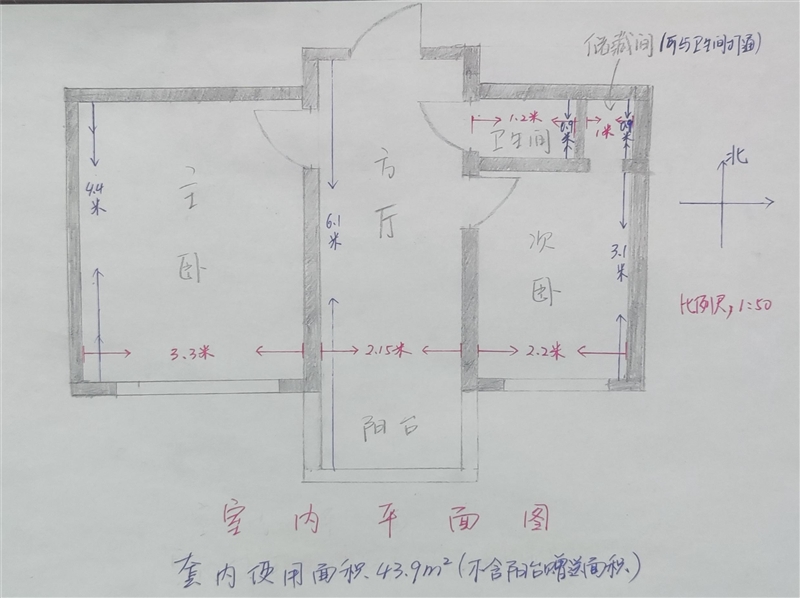 储藏间(可与卫生间打通)
1.2米
0.9米
1米
0.9米
卫生间
北
4.4米
主卧
方厅
6.1米
次卧
3.1米
比例尺,1:50
3.3米
2.15米
2.2米
阳台
室内平面图
套内使用面积43.9m²(不含阳台赠送面积)